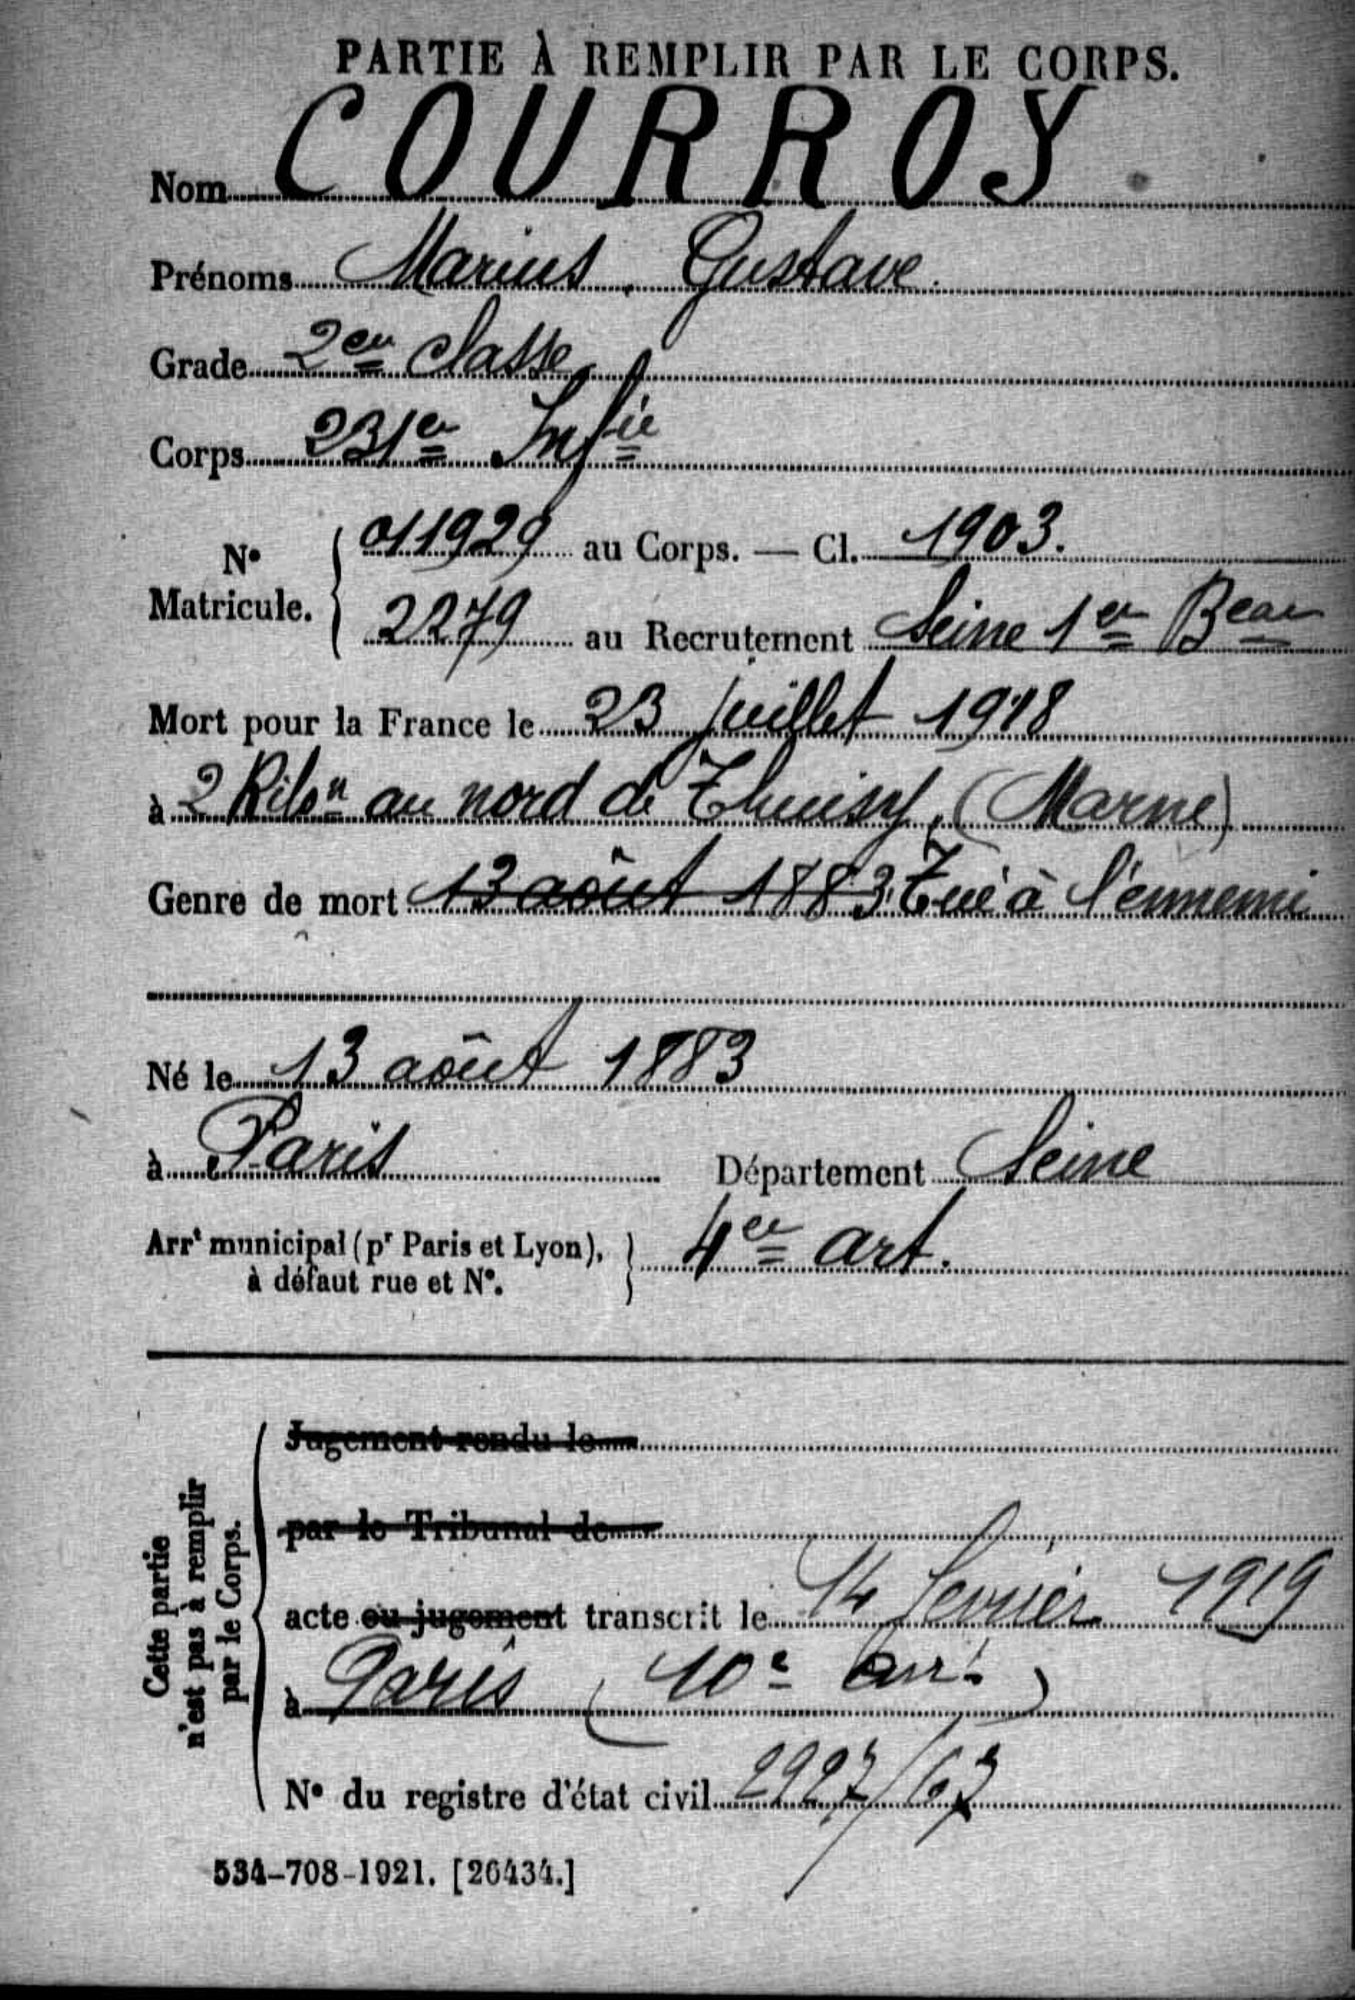 PARTIE À REMPLIR PAR LE CORPS.
Nom COURROY
Prénoms Marius, Gustave.
Grade 2em classe
Corps 231e Infie
No Matricule. { 011929 au Corps. — Cl. 1903.
2279 au Recrutement Seine 1er Beau
Mort pour la France le 23 juillet 1918
à 2 Kilon au nord de Thuisy, (Marne)
Genre de mort 13 août 1883 Tué à l'ennemi
Né le 13 août 1883
à Paris Département Seine
Arrt municipal (pr Paris et Lyon), à défaut rue et No. } 4e art.
Cette partie n'est pas à remplir par le Corps.
Jugement rendu le
par le Tribunal de
acte ou jugement transcrit le 14 février 1919
à Paris (10e arrt)
No du registre d'état civil 2927/63
534-708-1921. [26434.]